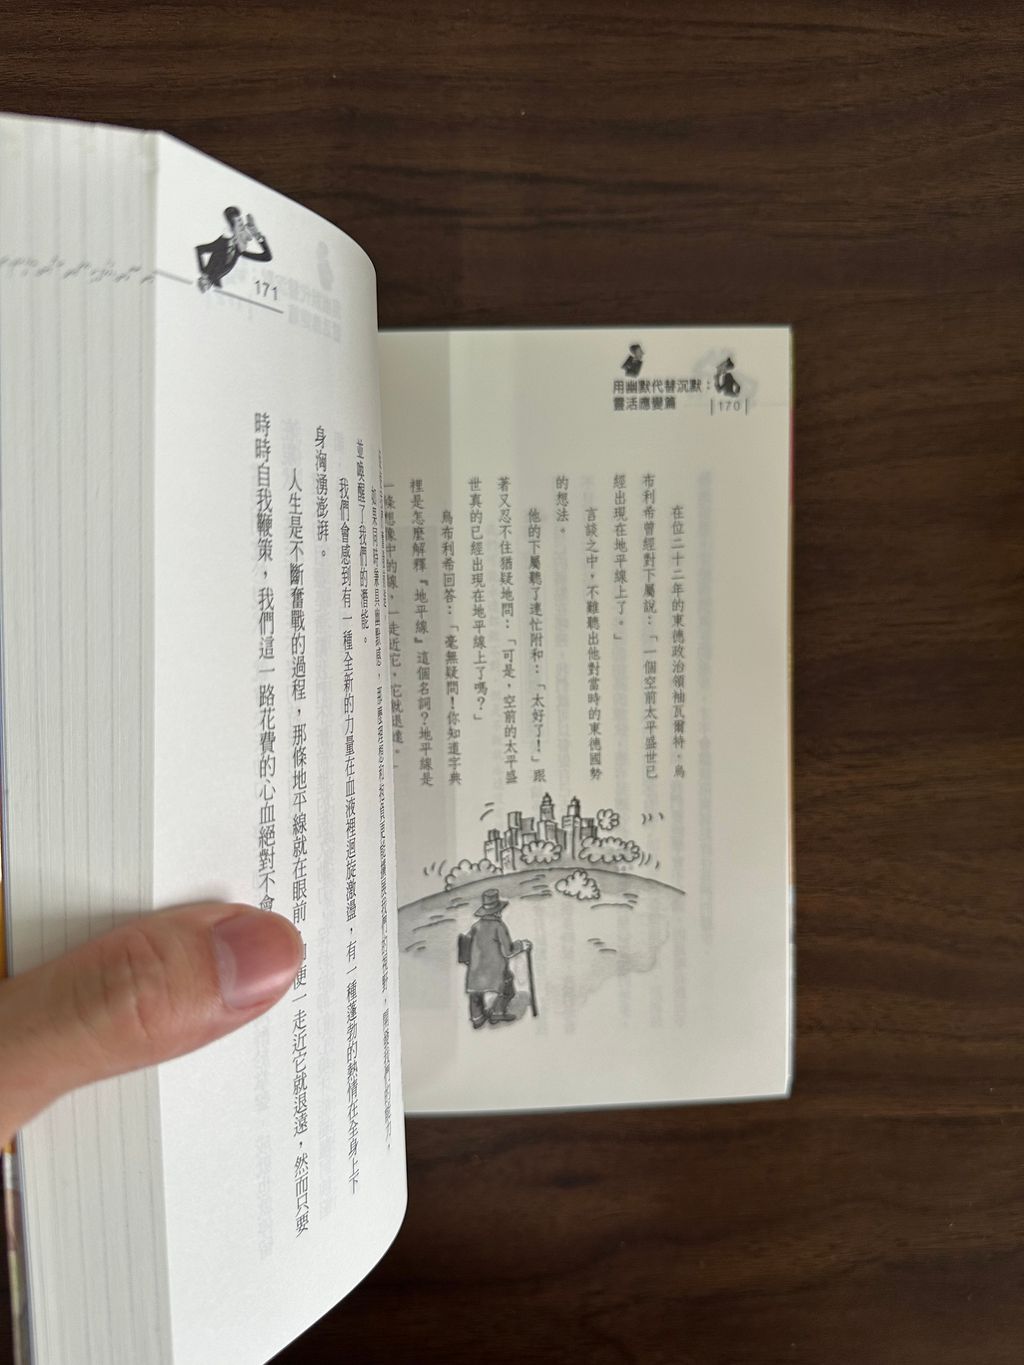 用幽默代替沉默：
靈活應變篇
170
在位二十二年的東德政治領袖瓦爾特．烏
布利希曾經對下屬說：「一個空前太平盛世已
經出現在地平線上了。」
言談之中，不難聽出他對當時的東德國勢
的想法。
他的下屬聽了連忙附和：「太好了！」跟
著又忍不住猶疑地問：「可是，空前的太平盛
世真的已經出現在地平線上了嗎？」
烏布利希回答：「毫無疑問！你知道字典
裡是怎麼解釋『地平線』這個名詞？地平線是
一條想像中的線，一走近它，它就退遠。」
171
並喚醒了我們的潛能。
我們會感到有一種全新的力量在血液裡迴旋激盪，有一種蓬勃的熱情在全身上下
身洶湧澎湃。
人生是不斷奮戰的過程，那條地平線就在眼前，便一走近它就退遠，然而只要
時時自我鞭策，我們這一路花費的心血絕對不會